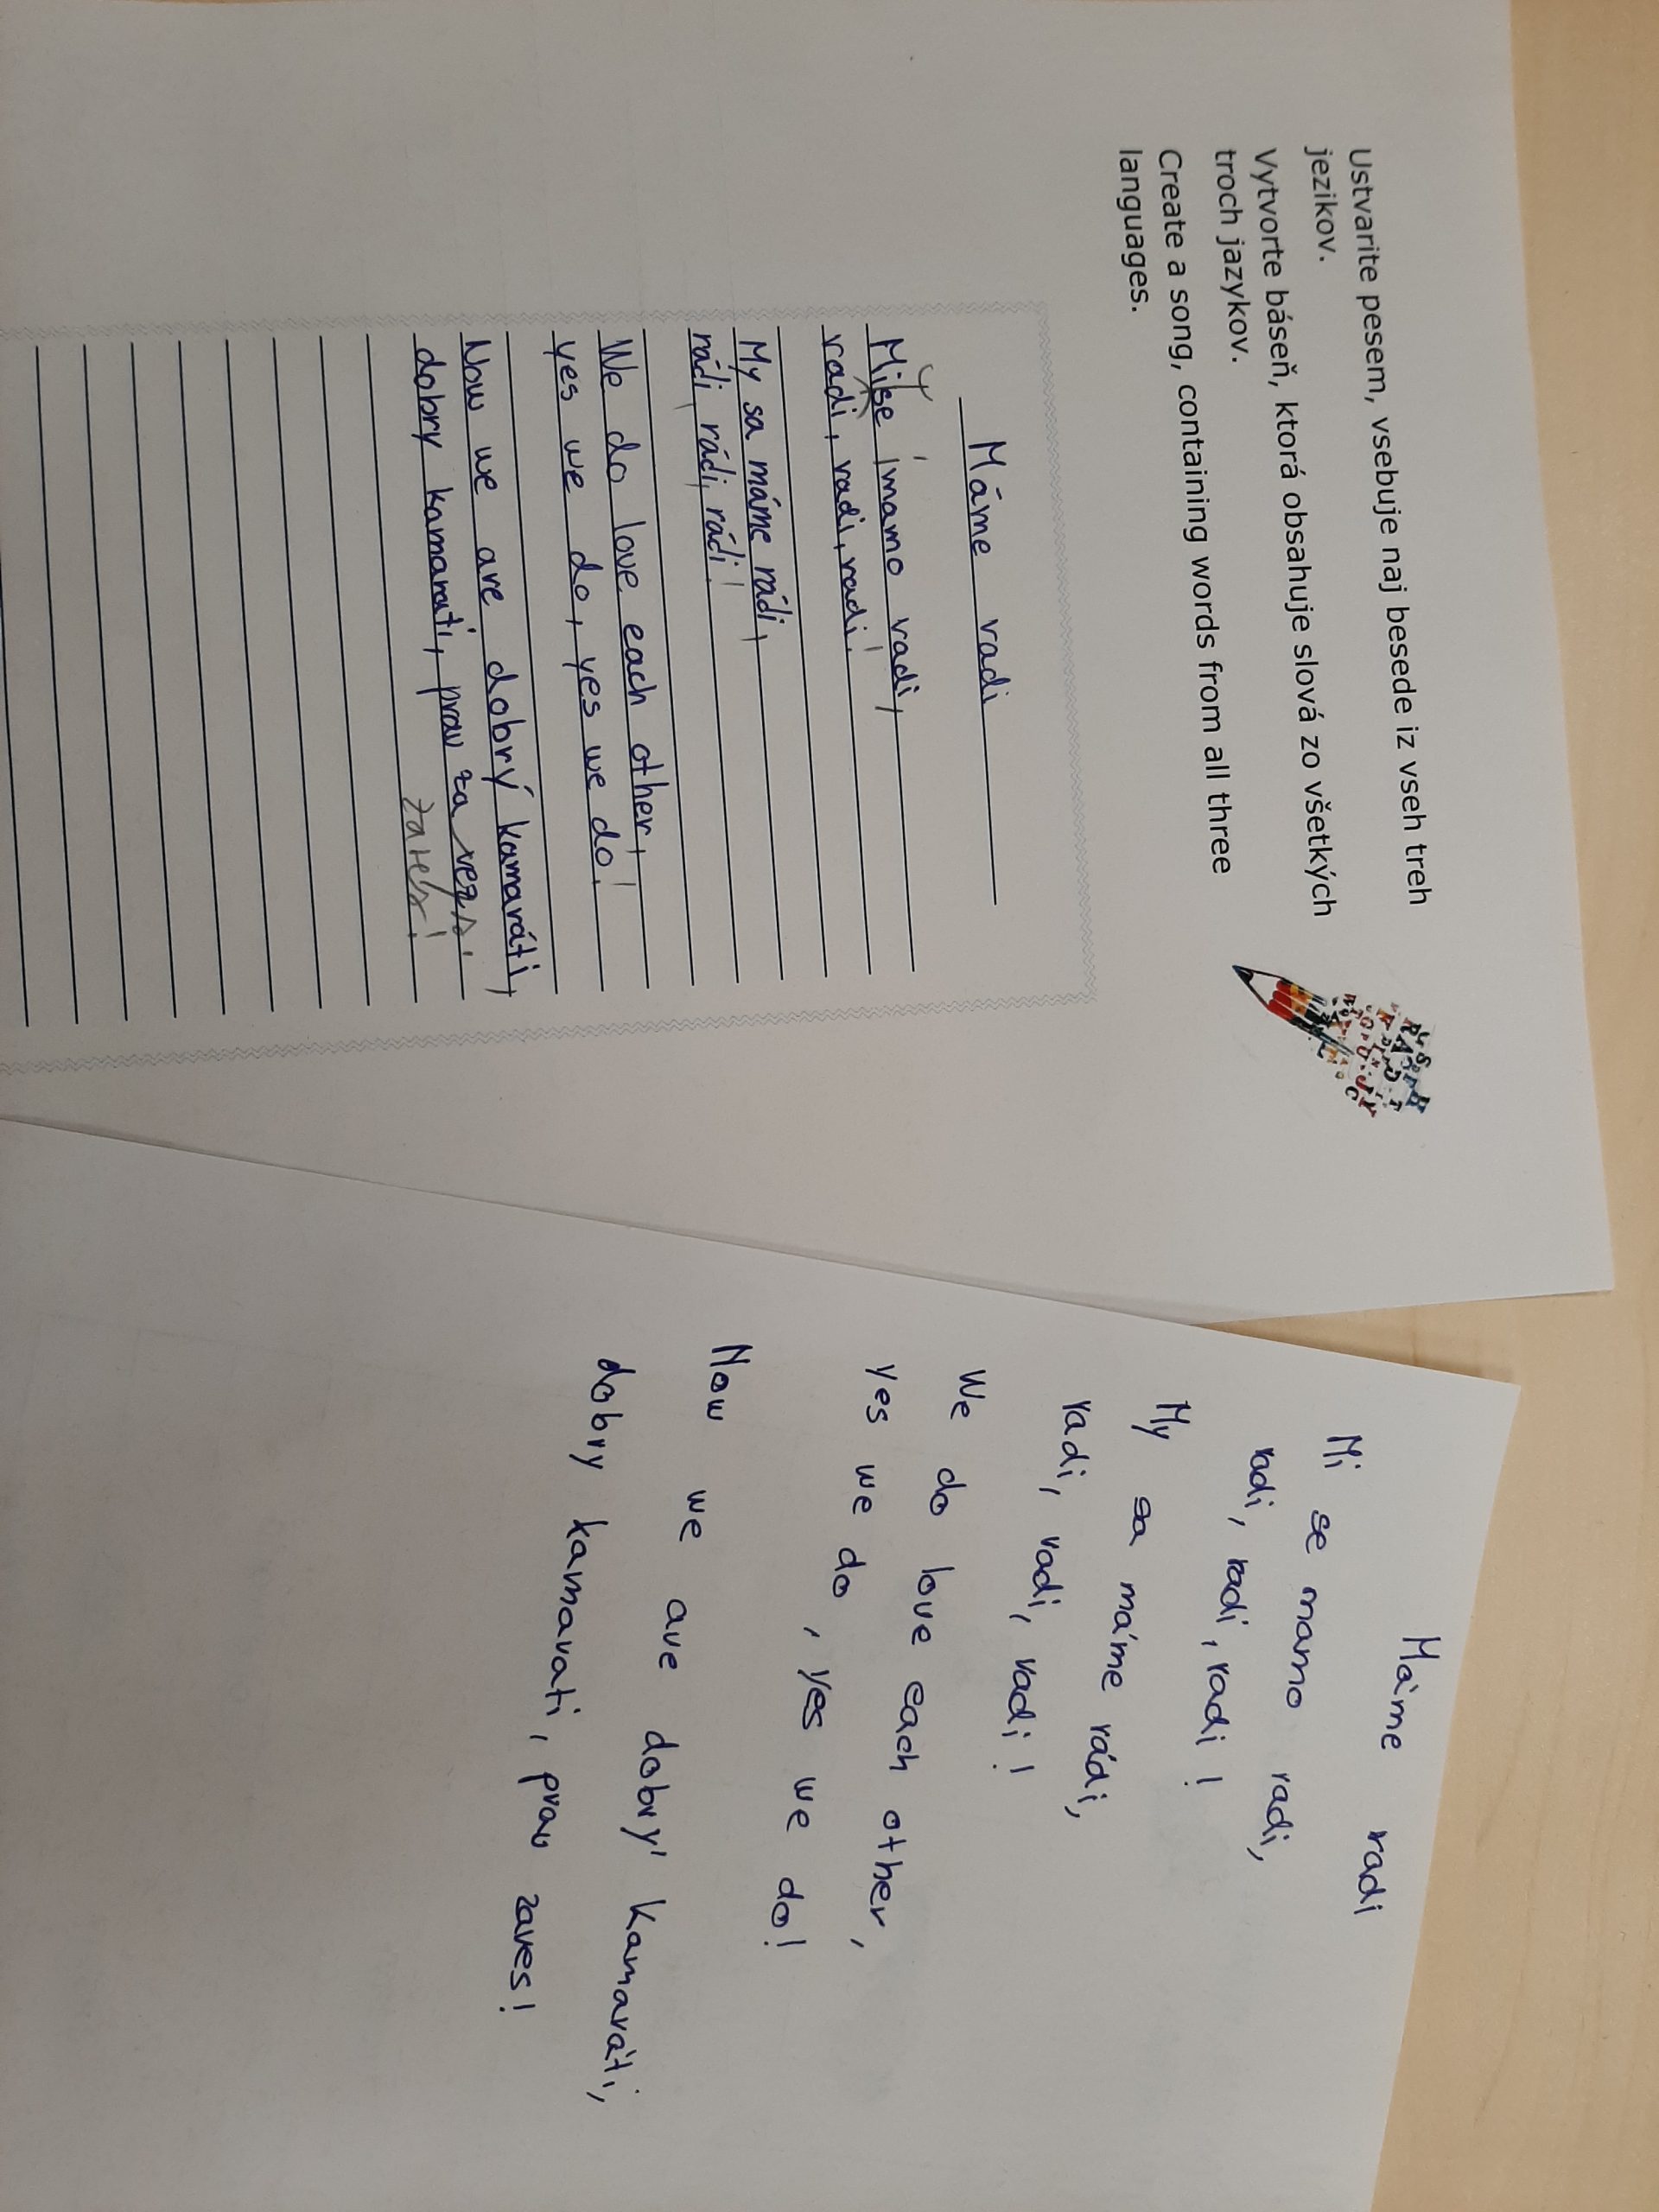 Ustvarite pesem, vsebuje naj besede iz vseh treh
jezikov.
Vytvorte báseň, ktorá obsahuje slová zo všetkých
troch jazykov.
Create a song, containing words from all three
languages.
Máme radi
Mi se imamo radi,
radi, radi, radi!
My sa máme rádi,
rádi, rádi, rádi!
We do love each other,
yes we do, yes we do!
Now we are dobrý kamaráti,
dobry kamarati, prav za
zares!
Máme radi
Mi se mamo radi,
radi, radi, radi!
My sa máme rádi,
radi, radi, radi!
We do love each other,
yes we do, yes we do!
Now we are dobrý kamaráti,
dobry kamarati, prav zares!